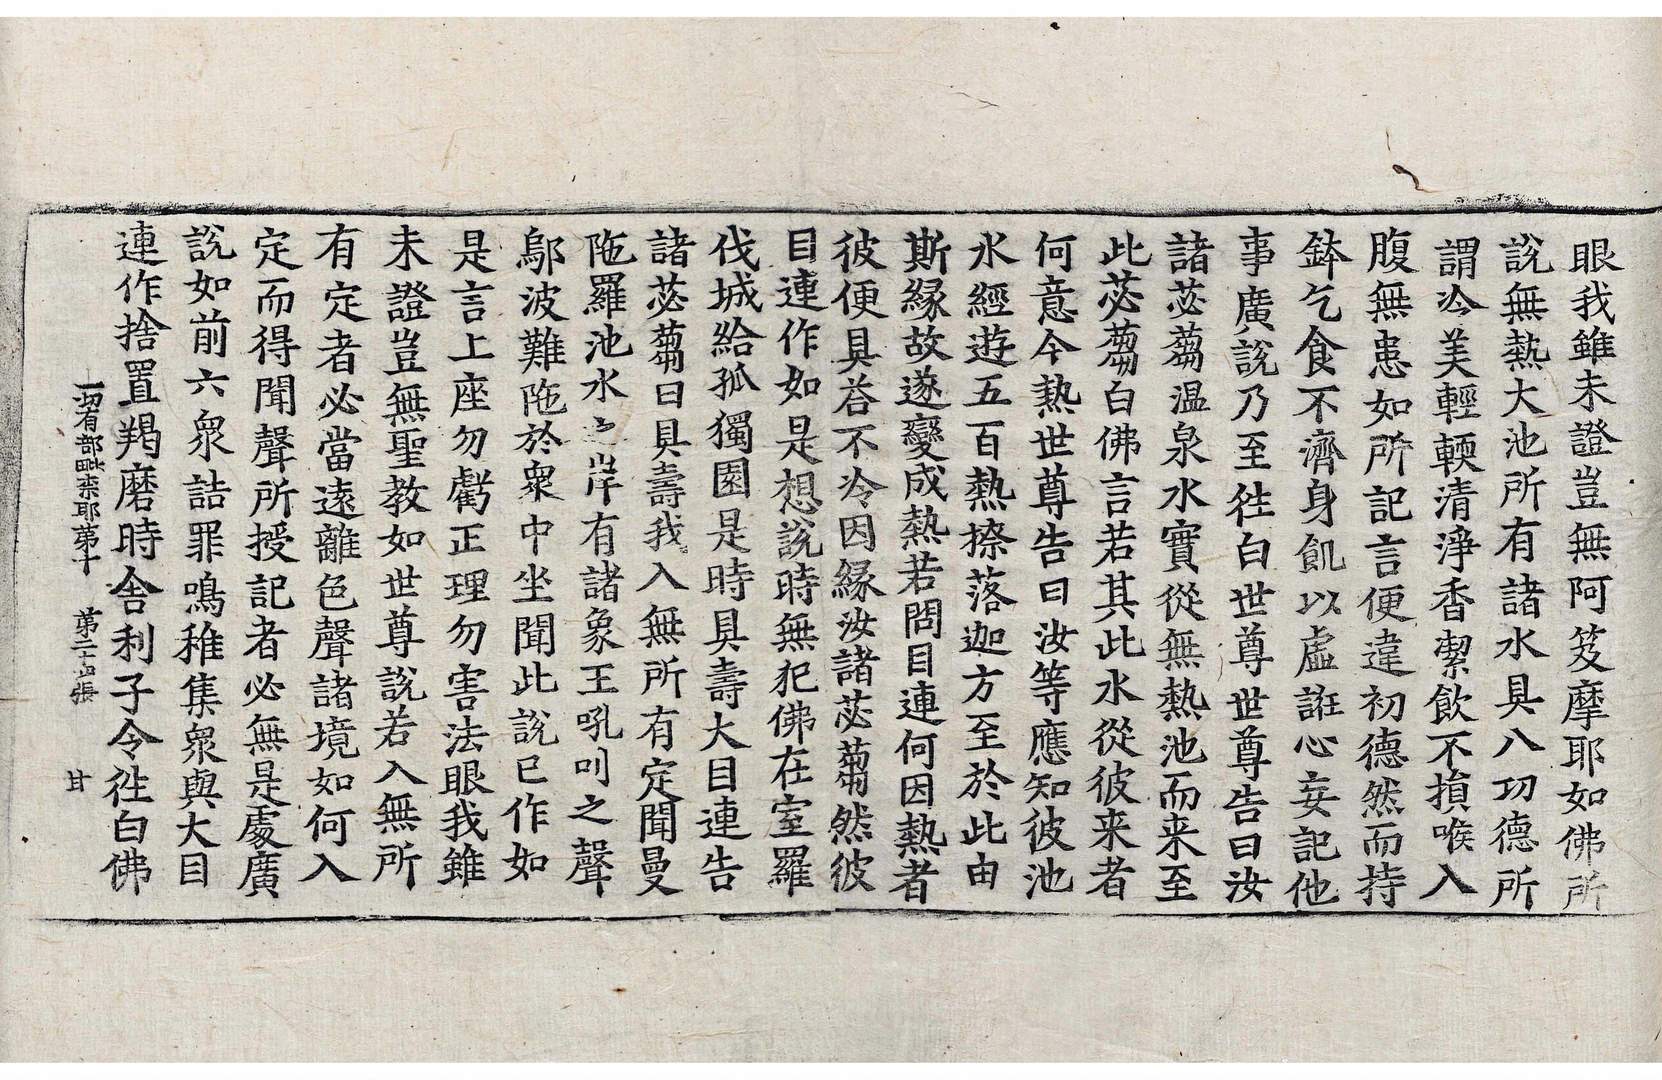 眼我雖未證豈無阿笈摩耶如佛所
說無熱大池所有諸水具八功德所
謂冷美輕輭清淨香潔飲不損喉入
腹無患如所記言便違初德然而持
鉢乞食不濟身飢以虛誑心妄記他
事廣說乃至徃白世尊世尊告曰汝
諸苾蒭温泉水實從無熱池而来至
此苾蒭白佛言若其此水從彼来者
何意今熱世尊告曰汝等應知彼池
水經遊五百熱捺落迦方至於此由
斯緣故遂變成熱若問目連何因熱者
彼便具荅不冷因緣汝諸苾蒭然彼
目連作如是想說時無犯佛在室羅
伐城給孤獨園是時具壽大目連告
諸苾蒭曰具壽我入無所有定聞曼
陁羅池水之岸有諸象王吼叫之聲
鄔波難陁於衆中坐聞此說已作如
是言上座勿虧正理勿害法眼我雖
未證豈無聖教如世尊說若入無所
有定者必當遠離色聲諸境如何入
定而得聞聲所授記者必無是處廣
說如前六衆詰罪鳴稚集衆與大目
連作捨置羯磨時舍利子令徃白佛
一切有部毗柰耶苐十 苐二十六張 甘